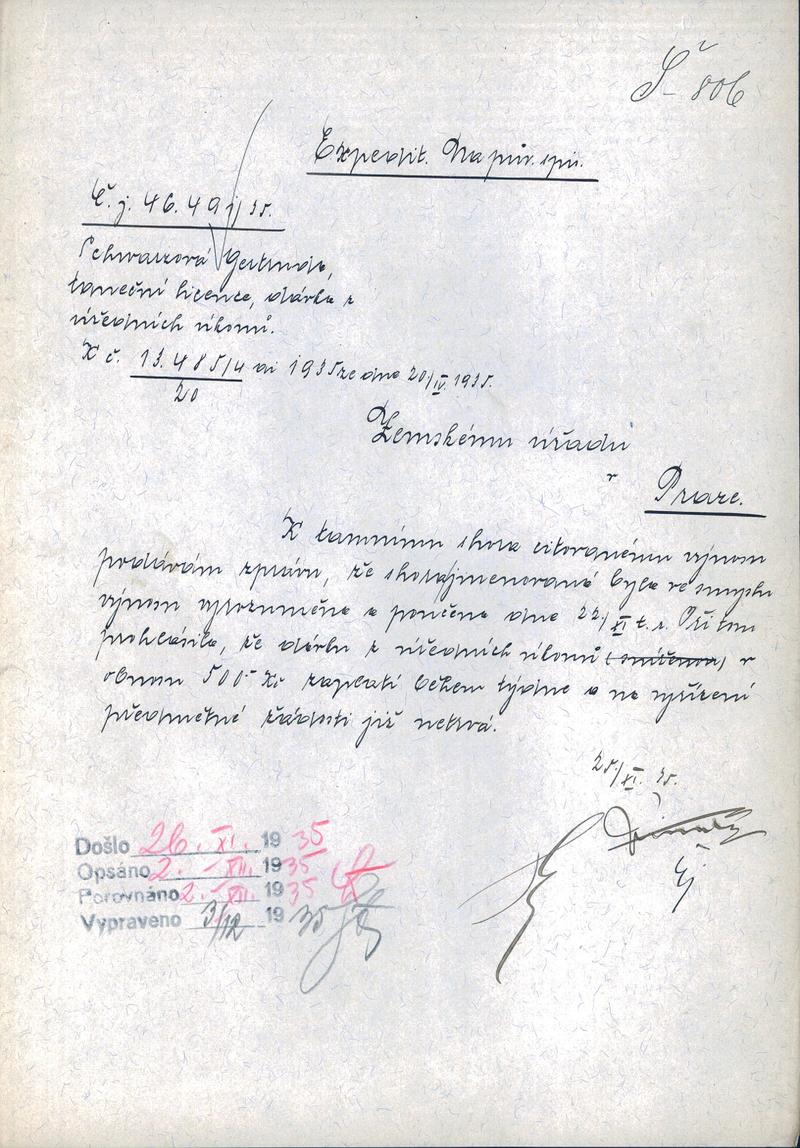 Š- 806
Expedit. Na pův. spis.
Č. j. 46.491/35.
Schwarzová Gertruda,
taneční licence, dávka z
úředních úkonů.
K č. 13.485/4 ai 1935 ze dne 20/IV. 1935.
20
Zemskému úřadu
v
Praze.
K tamnímu shora citovanému výnosu
podávám zprávu, že shorajmenovaná byla ve smyslu
výnosu vyrozuměna a poučena dne 22/XI t. r. Při tom
prohlásila, že dávku z úředních úkonů (sníženou) v
obnosu 500.- Kč zaplatí během týdne a na vyřízení
předmětné žádosti již netrvá.
25/XI. 35.
Došlo 26. XI. 1935
Opsáno 2. - XII. 1935
Porovnáno 2. - XII. 1935
Vypraveno 3/12 1935